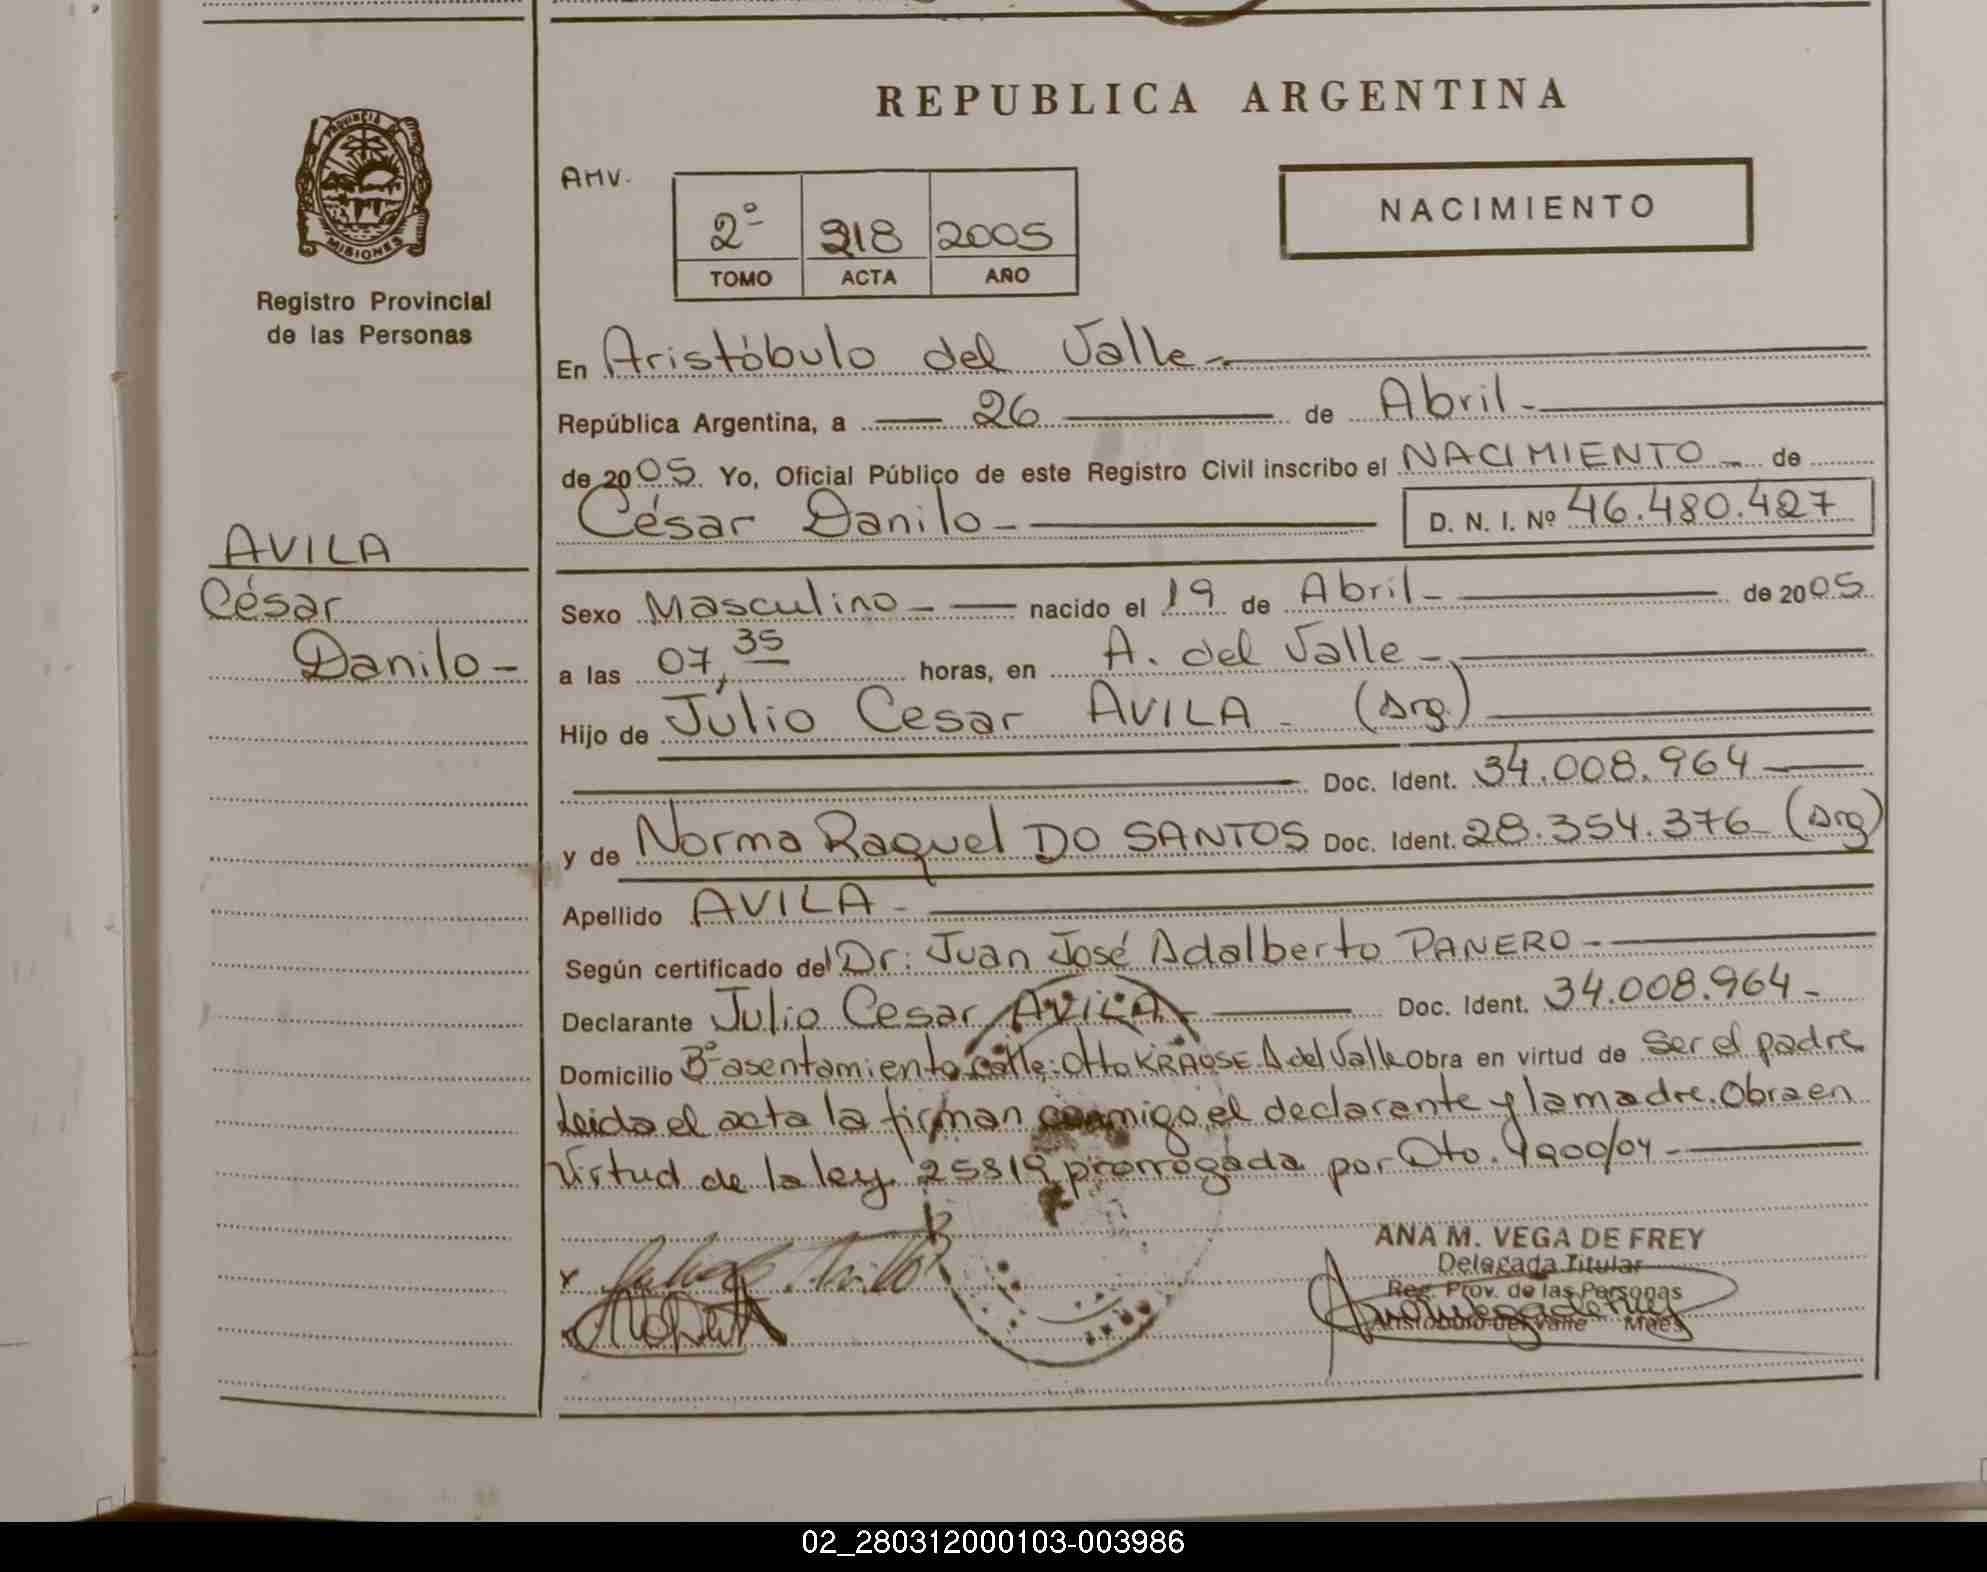 REPUBLICA ARGENTINA
PROVINCIA DE
MISIONES
Registro Provincial
de las Personas
AMV.
2º 218 2005
TOMO ACTA AÑO
NACIMIENTO
En Aristóbulo del Valle -
República Argentina, a 26 de Abril -
de 2005. Yo, Oficial Público de este Registro Civil inscribo el NACIMIENTO - de
César Danilo - D. N. I. Nº 46.480.427
AVILA
César
Danilo -
Sexo Masculino - nacido el 19 de Abril - de 2005
a las 07,35 horas, en A. del Valle -
Hijo de Júlio Cesar AVILA - (Arg.)
Doc. Ident. 34.008.964
y de Norma Raquel DO SANTOS Doc. Ident. 28.354.376 (Arg)
Apellido AVILA -
Según certificado del Dr: Juan José Adalberto PANERO -
Declarante Julio Cesar AVILA - Doc. Ident. 34.008.964 -
Domicilio Bº asentamiento calle: Otto KRAUSE. A del Valle Obra en virtud de ser el padre
Leida el acta la firman conmigo, el declarante y la madre. Obra en
virtud de la ley 25819 prorrogada por Dto. 1900/04 -
ANA M. VEGA DE FREY
Delegada Titular
Reg. Prov. de las Personas
Aristóbulo del Valle Mnes
02_280312000103-003986